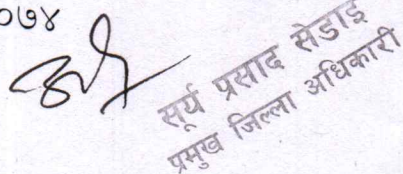 ०७४
सूर्य प्रसाद सेडाई
प्रमुख जिल्ला अधिकारी